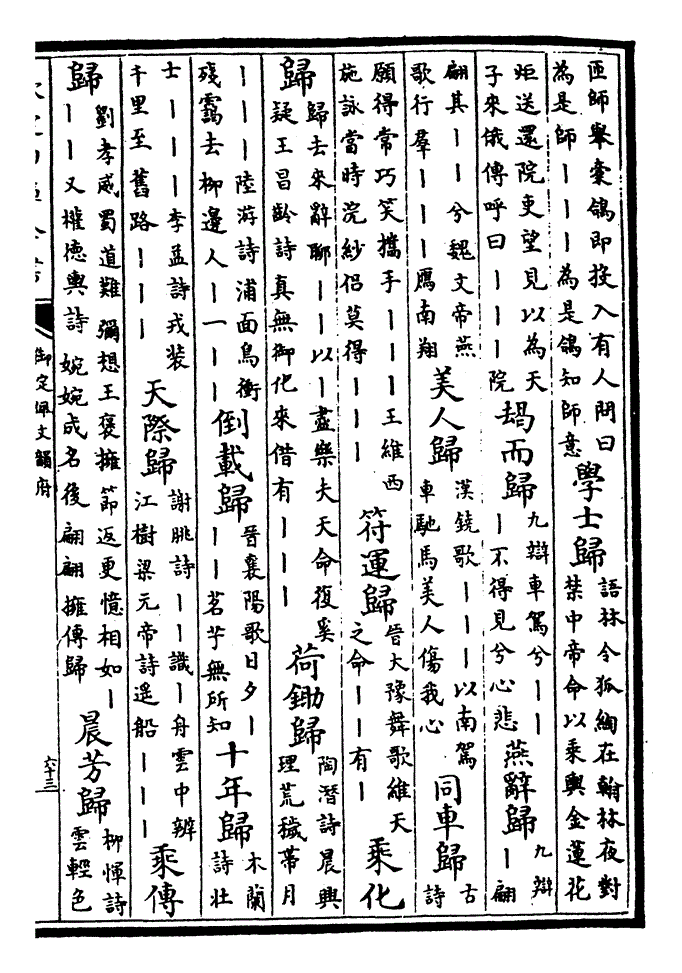 匝師舉橐鴿即投入有人問曰
為是師｜｜｜為是鴿知師意
學士歸
語林令狐綯在翰林夜對
禁中帝命以乘輿金蓮花
炬送還院吏望見以為天
子來俄傳呼曰｜｜｜院
朅而歸
九辯車駕兮｜｜
｜不得見兮心悲
燕辭歸
九辯
｜翩
翩其｜｜兮魏文帝燕
歌行羣｜｜｜鴈南翔
美人歸
漢鐃歌｜｜｜以南駕
車馳馬美人傷我心
同車歸
古
詩
願得常巧笑攜手｜｜｜王維西
施詠當時浣紗侣莫得｜｜｜
符運歸
晉大豫舞歌維天
之命｜｜有｜
乘化
歸
歸去來辭聊｜｜以｜盡樂夫天命復奚
疑王昌齡詩真無御化來借有｜｜｜
荷鋤歸
陶潛詩晨興
理荒穢帶月
｜｜｜陸游詩浦面鳥衝
殘靄去柳邊人｜一｜｜
倒載歸
晉襄陽歌日夕｜
｜｜茗艼無所知
十年歸
木蘭
詩壯
士｜｜｜｜李孟詩戎装
千里至舊路｜｜｜
天際歸
謝朓詩｜｜識｜舟雲中辨
江樹梁元帝詩遥船｜｜｜
乘傳
歸
劉孝威蜀道難彌想王褒擁節返更憶相如｜
｜｜又權德輿詩婉婉成名後翩翩擁傳歸
晨芳歸
柳惲詩
雲輕色
欽定四庫全書
御定佩文韻府
六十三